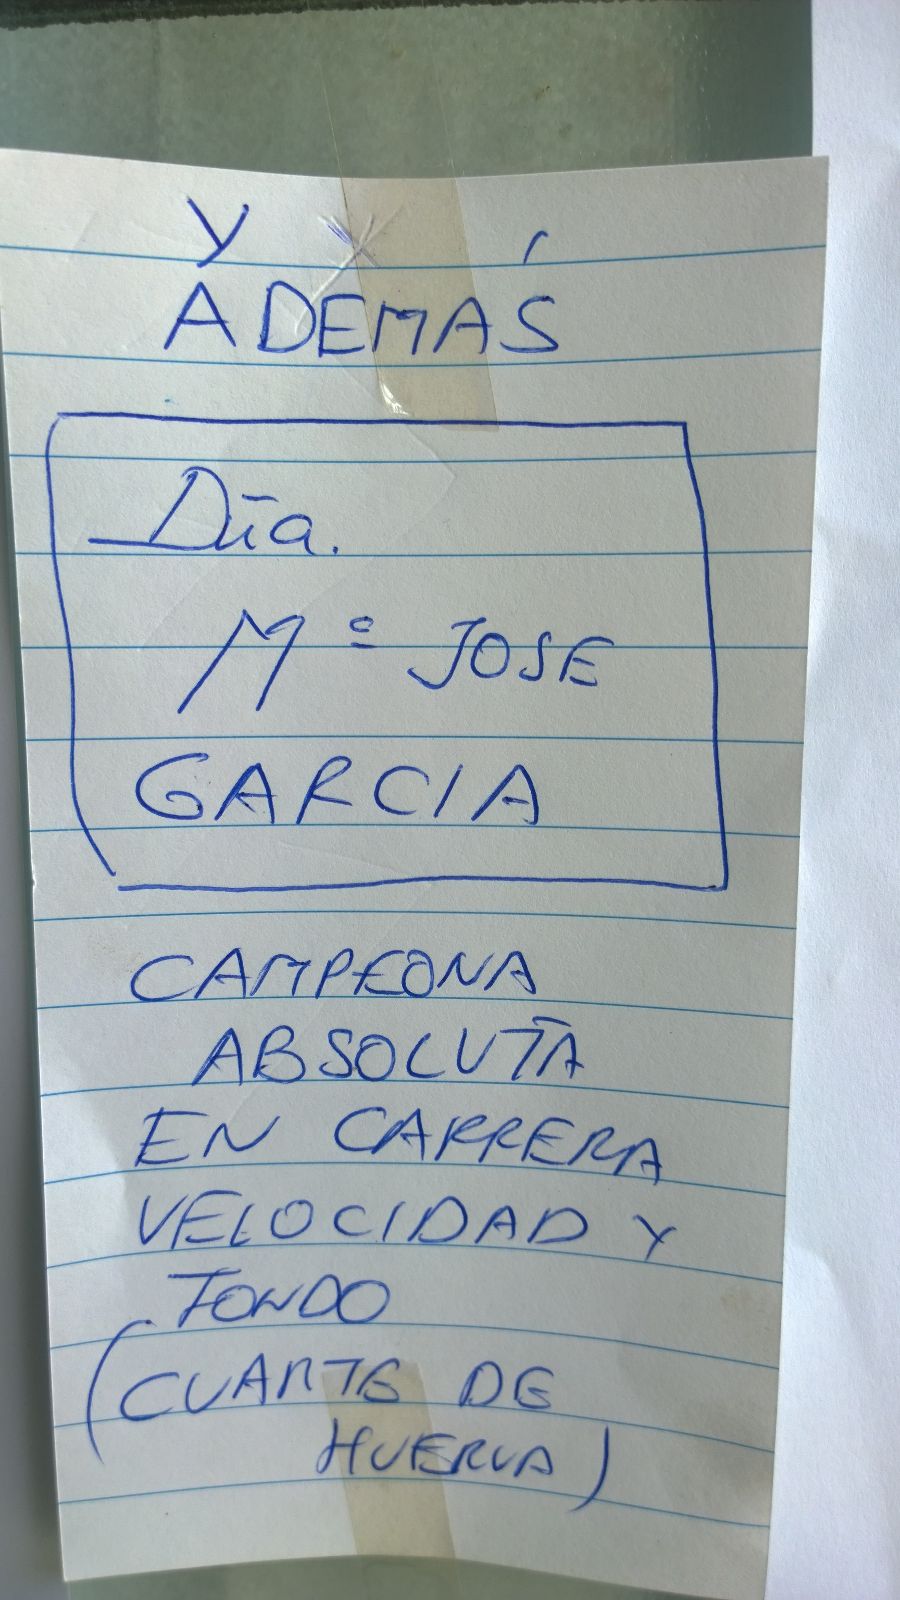 Y
ADEMÁS
Dña.
Mª JOSE
GARCIA
CAMPEONA
ABSOLUTA
EN CARRERA
VELOCIDAD Y
FONDO
(CUARTE DE
HUERVA)